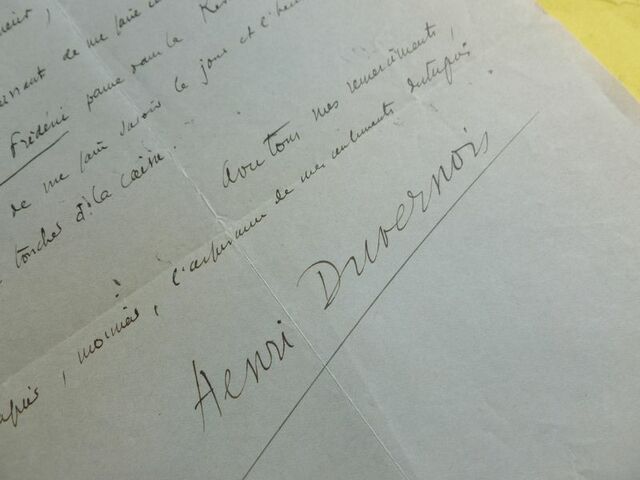 de me faire
Frédéric passe dans la
de me faire savoir le jour et l'heu
toucher à la caisse.
Avec tous mes remerciments,
, l'assurance de mes sentiments
Henri Duvernois